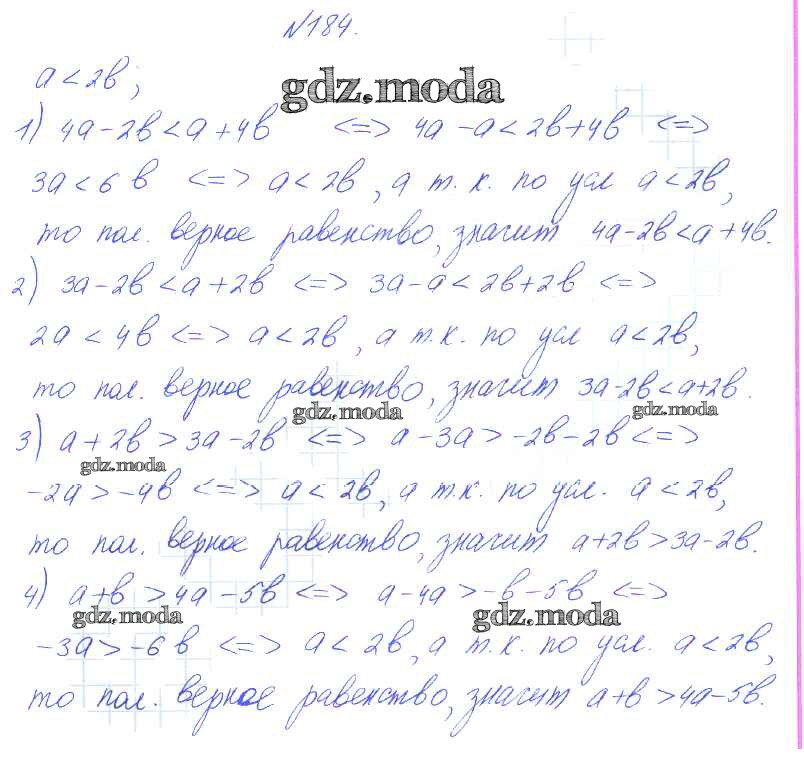 №184.
a < 2b;
gdz.moda
1) 4a-2b<a+4b <=> 4a-a<2b+4b <=>
3a<6b <=> a<2b, а т.к. по усл a<2b,
то пол. верное равенство, значит 4a-2b<a+4b.
2) 3a-2b<a+2b <=> 3a-a<2b+2b <=>
2a<4b <=> a<2b, а т.к. по усл a<2b,
то пол. верное равенство, значит 3a-2b<a+2b.
gdz.moda gdz.moda
3) a+2b>3a-2b <=> a-3a>-2b-2b <=>
gdz.moda
-2a>-4b <=> a<2b, а т.к. по усл. a<2b,
то пол. верное равенство, значит a+2b>3a-2b.
4) a+b>4a-5b <=> a-4a>-b-5b <=>
gdz.moda gdz.moda
-3a>-6b <=> a<2b, а т.к. по усл. a<2b,
то пол. верное равенство, значит a+b>4a-5b.